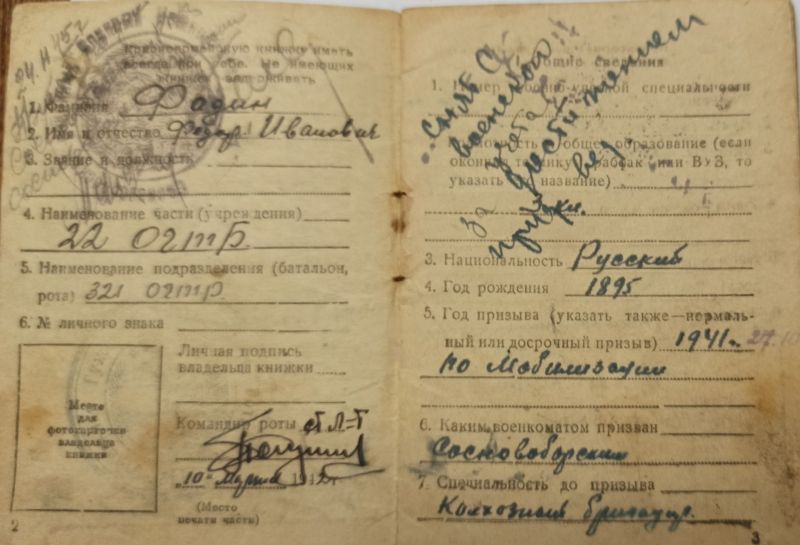 04. II 45 г
Красноармейскую книжку иметь
всегда при себе. Не имеющих
книжек задерживать
1. Фамилия Фадин
2. Имя и отчество Федор Иванович
3. Звание и должность
4. Наименование части (учреждения)
22 ОГТБ
5. Наименование подразделения (батальон,
рота) 321 ОГТР
6. № личного знака
Место
для
фотокарточки
владельца
книжки
Личная подпись
владельца книжки
Командир роты ст л-т
"10" Марта 194 г
(Место
печати части)
2
Общие сведения
1. Номер военно-учетной специальности
Снят с
воинского
учета
за достижением
2. Грамотность и общее образование (если
окончил техникум, рабфак или ВУЗ, то
указать название)
3 кл.
3. Национальность Русский
4. Год рождения 1895
5. Год призыва (указать также—нормаль-
ный или досрочный призыв) 1941 г. 27.10
по мобилизации
6. Каким военкоматом призван
Сосновоборским
7. Специальность до призыва
Колхозный бригадир.
3